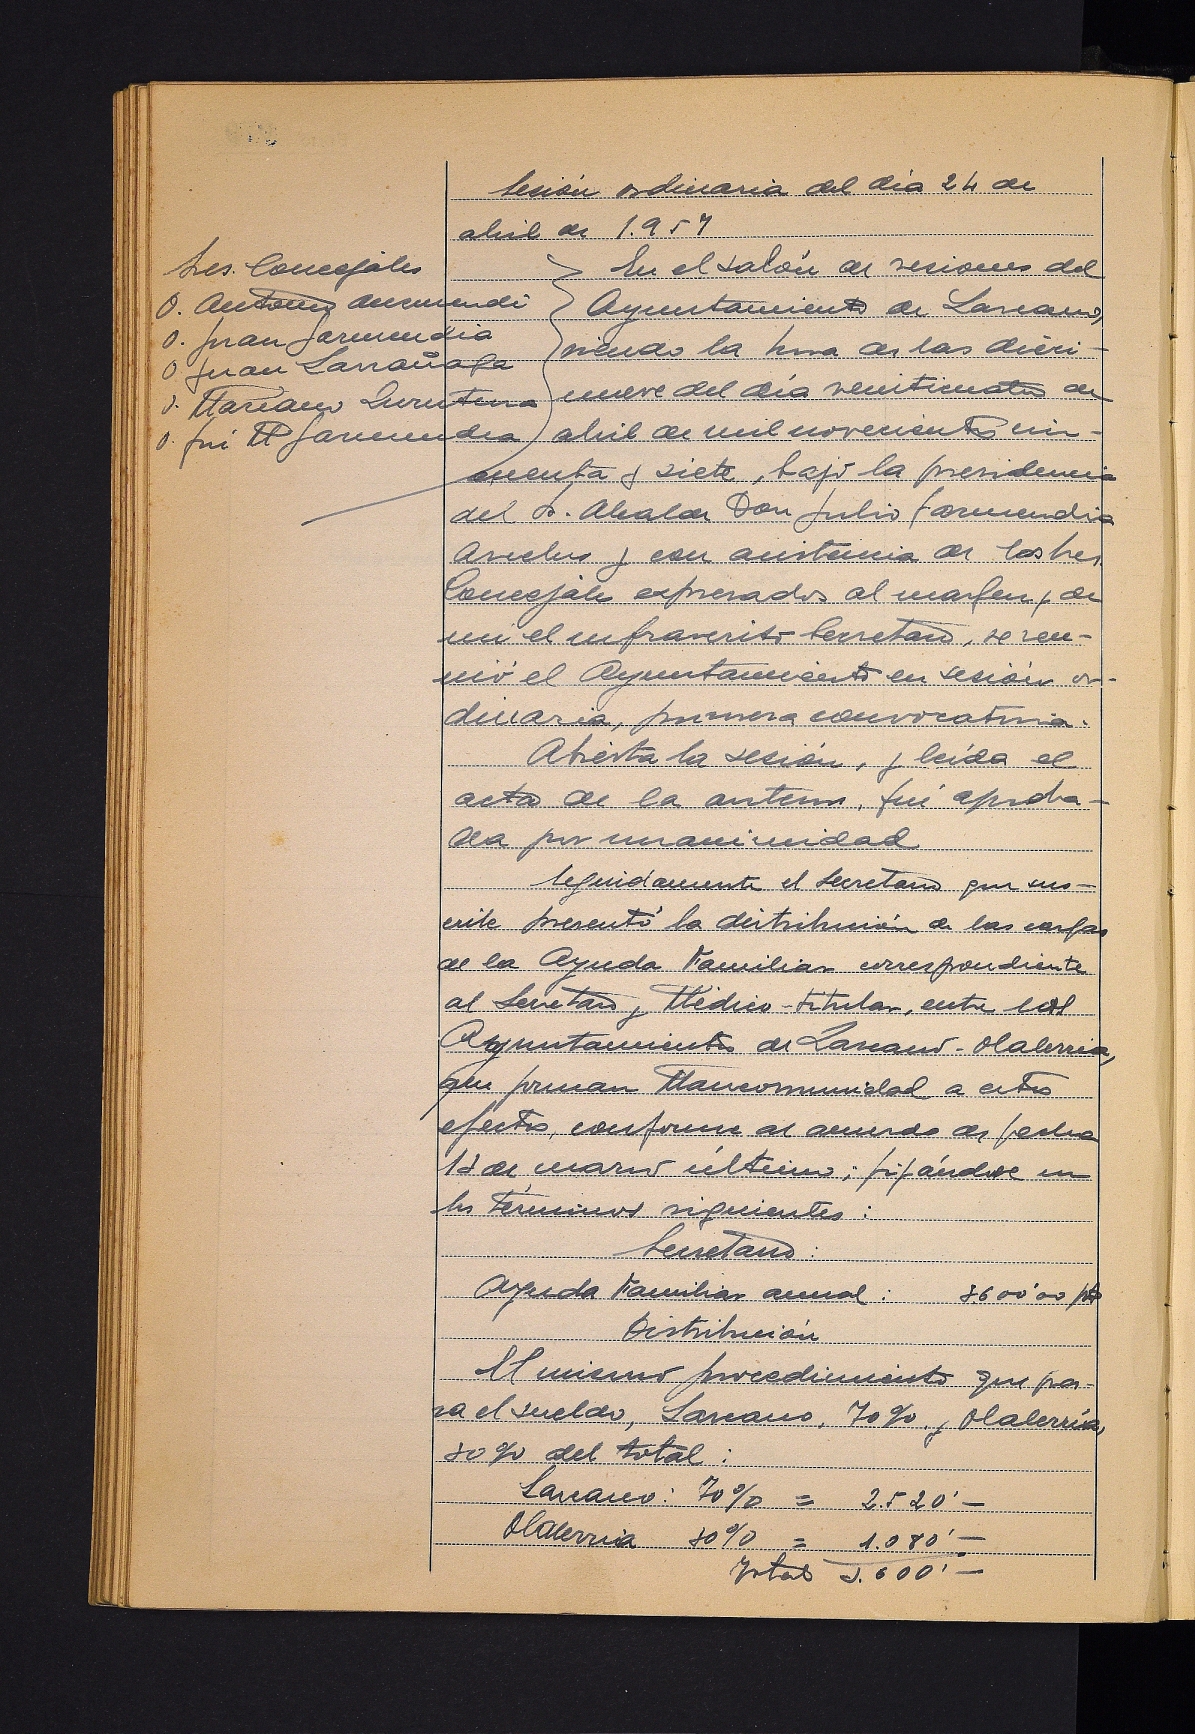 Sesión ordinaria del día 24 de
abril de 1.957
Sres. Concejales
D. Antonio
D. Juan Garmendia
D. Juan Larrañaga
D. Mariano
D. José Mª Garmendia
En el salón de sesiones del
Ayuntamiento de Lazcano,
siendo la hora de las dieci-
nueve del día veinticuatro de
abril de mil novecientos cin-
cuenta y siete, bajo la presidencia
del Sr. Alcalde Don Julio Garmendia
y con asistencia de los Sres.
Concejales expresados al margen y de
mi el infrascrito Secretario, se reu-
nió el Ayuntamiento en sesión or-
dinaria, primera convocatoria.
Abierta la sesión, y leída el
acta de la anterior, fué aproba-
da por unanimidad
Seguidamente el Secretario que sus-
cribe presentó la distribución de las cargas
de la Ayuda Familiar correspondiente
al Secretario y Médico-titular, entre los
Ayuntamientos de Lazcano-Olaberria,
que forman Mancomunidad a estos
efectos, conforme al acuerdo de fecha
13 de marzo último; fijándose en
los términos siguientes:
Secretario:
Ayuda Familiar anual: 3.600'00 pts
Distribución
El mismo procedimiento que pa-
ra el sueldo, Lazcano, 70% y Olaberría,
30% del total:
Lazcano: 70% = 2.520'—
Olaberria 30% = 1.080'—
Total 3.600'—